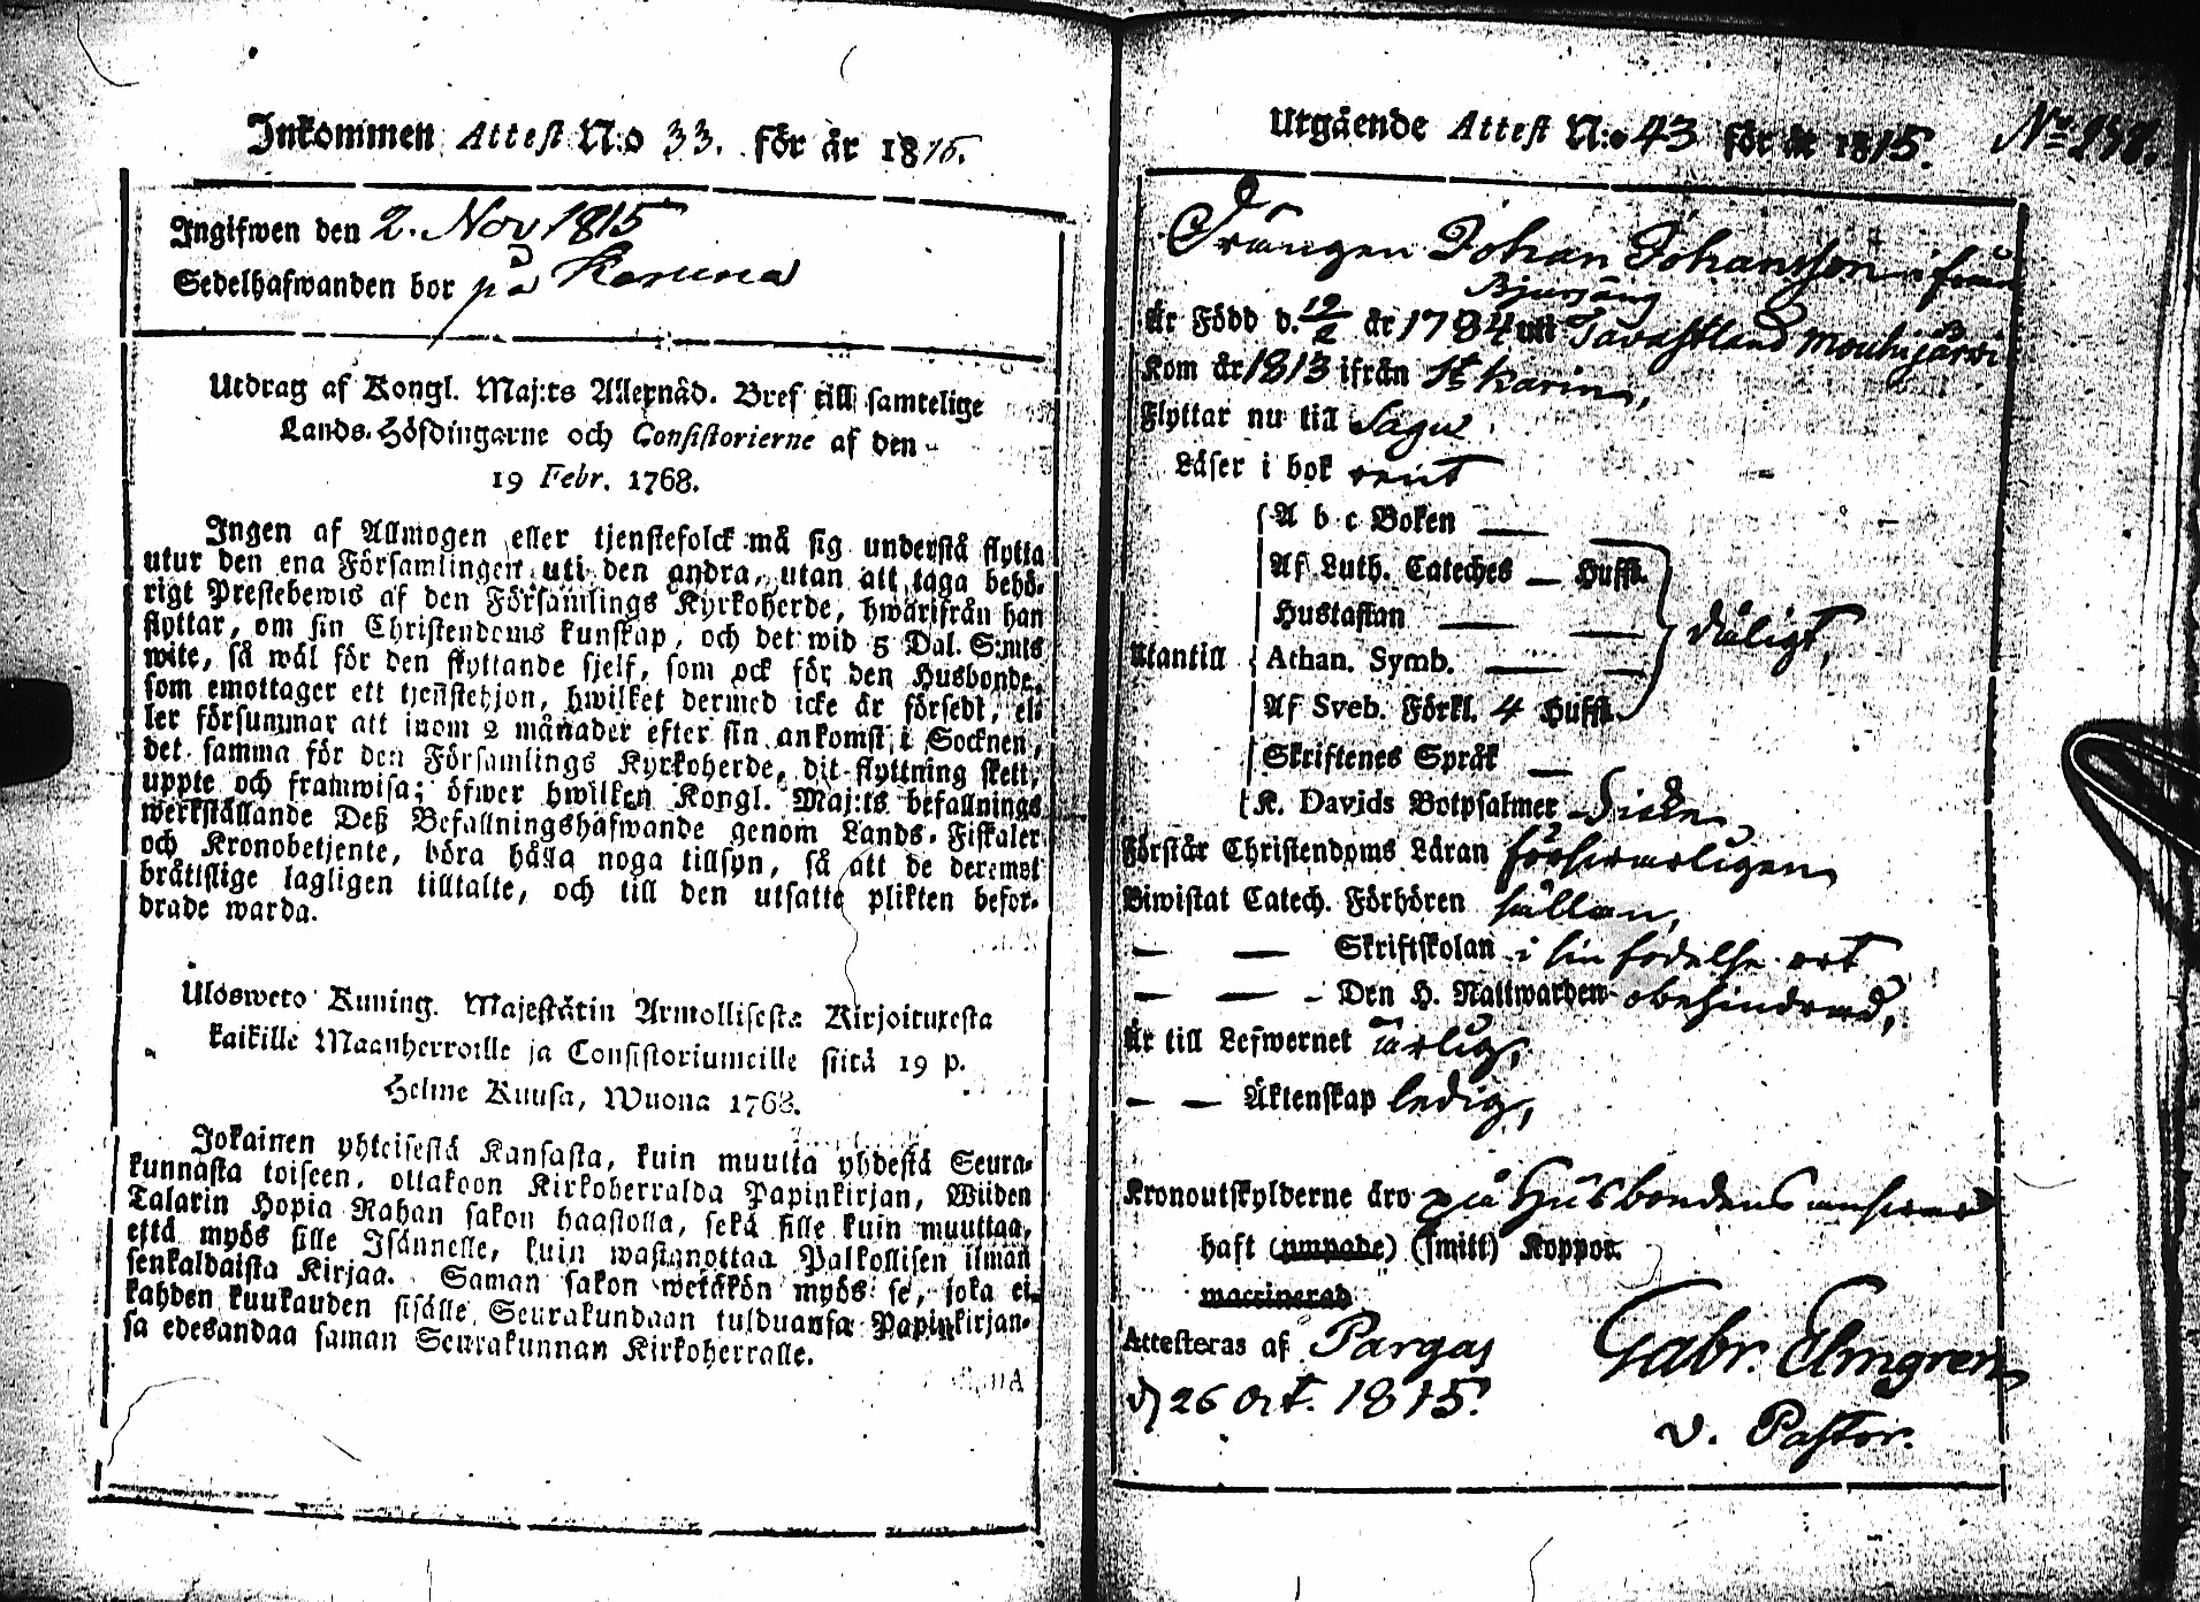 Inkommen Attest N:o 33. för år 1815.
Ingifwen den 2. Nov 1815
Sedelhafwanden bor på Karuna
Utdrag af Kongl. Maj:ts Allernåd. Bref till samtelige
Lands-Höfdingarne och Consistorierne af den
19 Febr. 1768.
Ingen af Allmogen eller tjenstefolck må sig understå flytta
utur den ena Församlingen uti den andra, utan att taga behö-
rigt Prestebewis af den Församlings Kyrkoherde, hwarifrån han
flyttar, om sin Christendoms kunskap, och det wid 5 Dal. S:mts
wite, så wäl för den flyttande sjelf, som ock för den Husbonde,
som emottager ett tjenstehjon, hwilket dermed icke är försedt, el-
ler försummar att inom 2 månader efter sin ankomst i Socknen,
det samma för den Församlings Kyrkoherde, dit flyttning skett,
uppte och framwisa; öfwer hwilken Kongl. Maj:ts befallnings
werkställande Deß Befallningshafwande genom Lands-Fiskaler
och Kronobetjente, böra hålla noga tillsyn, så att de deremot
bråtislige lagligen tilltalte, och till den utsatte plikten befor-
drade warda.
Ulosweto Kuning. Majestätin Armollisesta Kirjoituxesta
kaikille Maanherroille ja Consistoriumeille siitä 19 p.
Helme Kuusa, Wuona 1768.
Jokainen yhteisestä Kansasta, kuin muutta yhdestä Seura-
kunnasta toiseen, ottakoon Kirkoherralda Papinkirjan, Wiiden
Talarin Hopia Rahan sakon haastolla, sekä sille kuin muuttaa,
että myös sille Isännelle, kuin wastanottaa Palkollisen ilman
senkaldaista Kirjaa. Saman sakon wetäkön myös se, joka ei
kahden kuukauden sisälle Seurakundaan tulduansa Papinkirjan-
sa edesandaa saman Seurakunnan Kirkoherralle.
Utgående Attest N:o 43 för år 1815. No 258.
Drängen Johan Johansson ifrån
Bjursäng
Är Född d. 19/2 år 1784 uti Tavastland Mouhijärvi
Kom år 1813 ifrån St Karins,
Flyttar nu till Sagu
Läser i bok rent
A b c Boken —
Af Luth. Cateches — Huffst.
Hustaflan — —
Utantill Athan. Symb. — — dåligt,
Af Sveb. Förkl. 4 Huffst.
Skriftenes Språk —
K. Davids Botpsalmer Dicke
Förstår Christendoms Läran försvarligen
Biwistat Catech. Förhören sällan,
— — Skriftskolan i sin födelse ort
— — Den H. Nattwarden obehindrad,
Är till Lefwernet ärlig,
— — Äktenskap ledig,
Kronoutskylderne äro på Husbondens ansvar
haft (ympade) (smitt) Koppor.
vaccinerad
Attesteras af Pargas Gabr. Elmgren
d 26 Oct. 1815. v. Pastor.